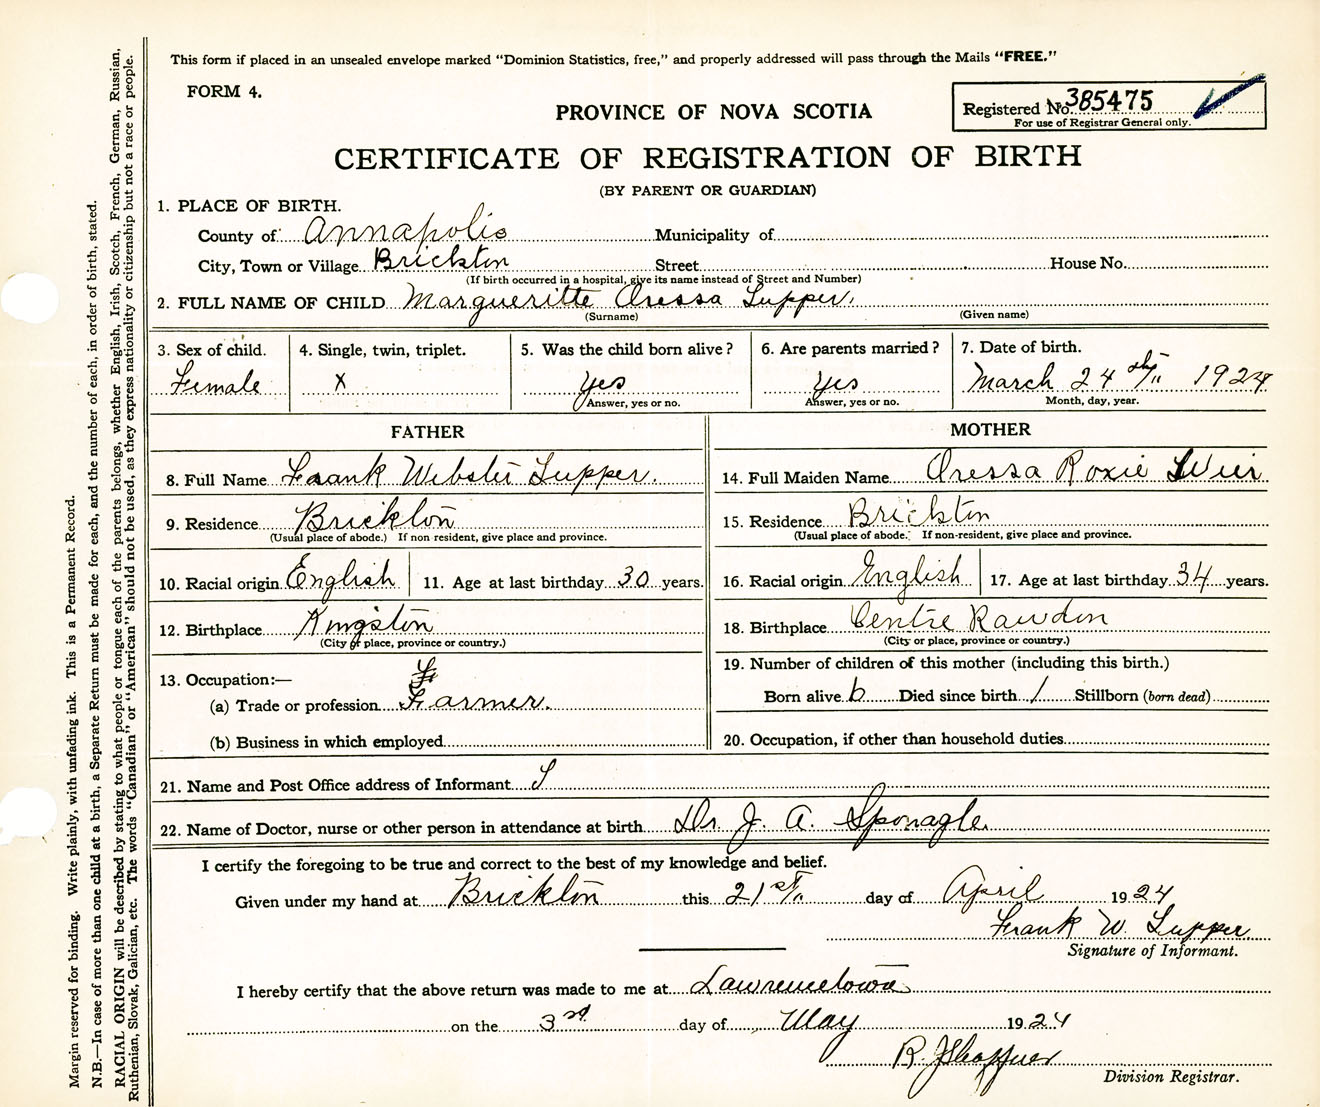 This form if placed in an unsealed envelope marked "Dominion Statistics, free," and properly addressed will pass through the Mails "FREE."
FORM 4.
PROVINCE OF NOVA SCOTIA
Registered No. 385475
For use of Registrar General only.
CERTIFICATE OF REGISTRATION OF BIRTH
(BY PARENT OR GUARDIAN)
1. PLACE OF BIRTH.
County of Annapolis Municipality of
City, Town or Village Brickton Street House No.
(If birth occurred in a hospital, give its name instead of Street and Number)
2. FULL NAME OF CHILD Margueritte Oressa Tupper.
(Surname) (Given name)
3. Sex of child. 4. Single, twin, triplet. 5. Was the child born alive? 6. Are parents married? 7. Date of birth.
Female X yes yes March 24th 1924
Answer, yes or no. Answer, yes or no. Month, day, year.
FATHER MOTHER
8. Full Name Frank Webster Tupper. 14. Full Maiden Name Oressa Roxie Wier
9. Residence Brickton 15. Residence Brickton
(Usual place of abode.) If non-resident, give place and province. (Usual place of abode. If non-resident, give place and province.
10. Racial origin English 11. Age at last birthday 30 years. 16. Racial origin English 17. Age at last birthday 34 years.
12. Birthplace Kingston 18. Birthplace Centre Rawdon
(City or place, province or country.) (City or place, province or country.)
13. Occupation:— 19. Number of children of this mother (including this birth.)
(a) Trade or profession Farmer. Born alive 6 Died since birth 1 Stillborn (born dead)
(b) Business in which employed 20. Occupation, if other than household duties
21. Name and Post Office address of Informant
22. Name of Doctor, nurse or other person in attendance at birth Dr. J. A. Sponagle.
I certify the foregoing to be true and correct to the best of my knowledge and belief.
Given under my hand at Brickton this 21st day of April 1924
Frank W. Tupper
Signature of Informant.
I hereby certify that the above return was made to me at Lawrencetown
on the 3rd day of May 1924
R. J. Shaffner
Division Registrar.
Margin reserved for binding. Write plainly, with unfading ink. This is a Permanent Record.
N.B.—In case of more than one child at a birth, a Separate Return must be made for each, and the number of each, in order of birth, stated.
RACIAL ORIGIN will be described by stating to what people or tongue each of the parents belongs, whether English, Irish, Scotch, French, German, Russian,
Ruthenian, Slovak, Galician, etc. The words "Canadian" or "American" should not be used, as they express nationality or citizenship but not a race or people.